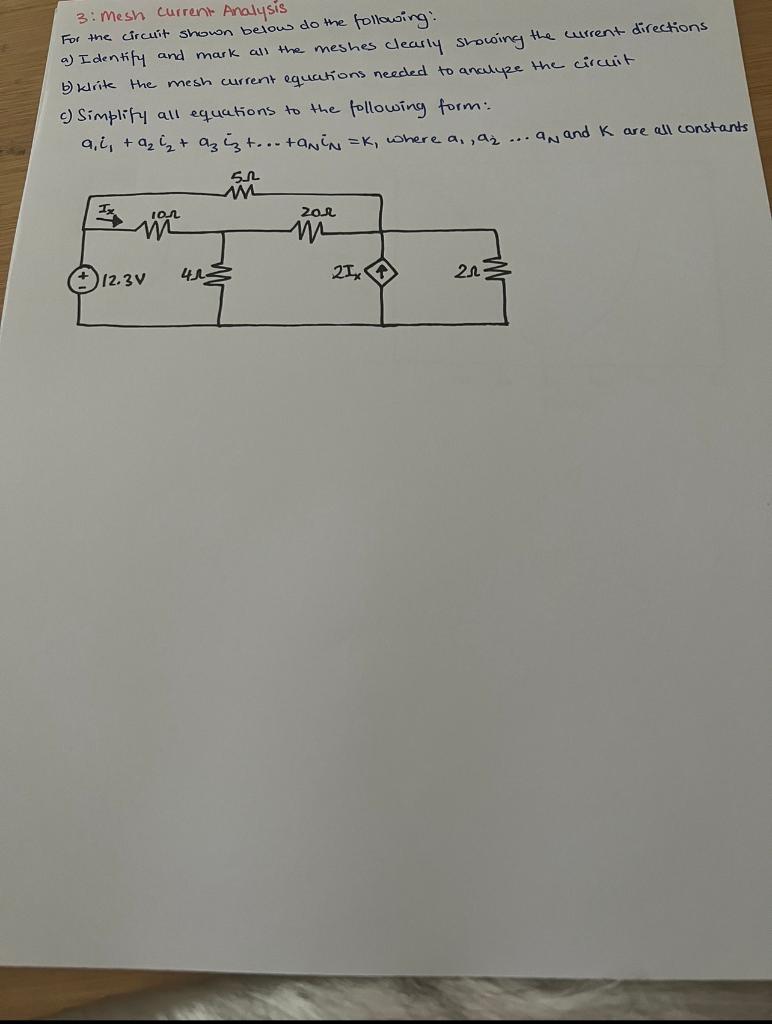 3: Mesh Current Analysis
For the circuit shown below do the following:
a) Identify and mark all the meshes clearly showing the current directions
b) Write the mesh current equations needed to analyze the circuit
c) Simplify all equations to the following form:
a₁i₁ + a₂i₂ + a₃i₃ + ... + aNiN = K, where a₁, a₂ ... aN and K are all constants
5Ω
Ix 10Ω 20Ω
12.3V 4Ω 2Ix 2Ω